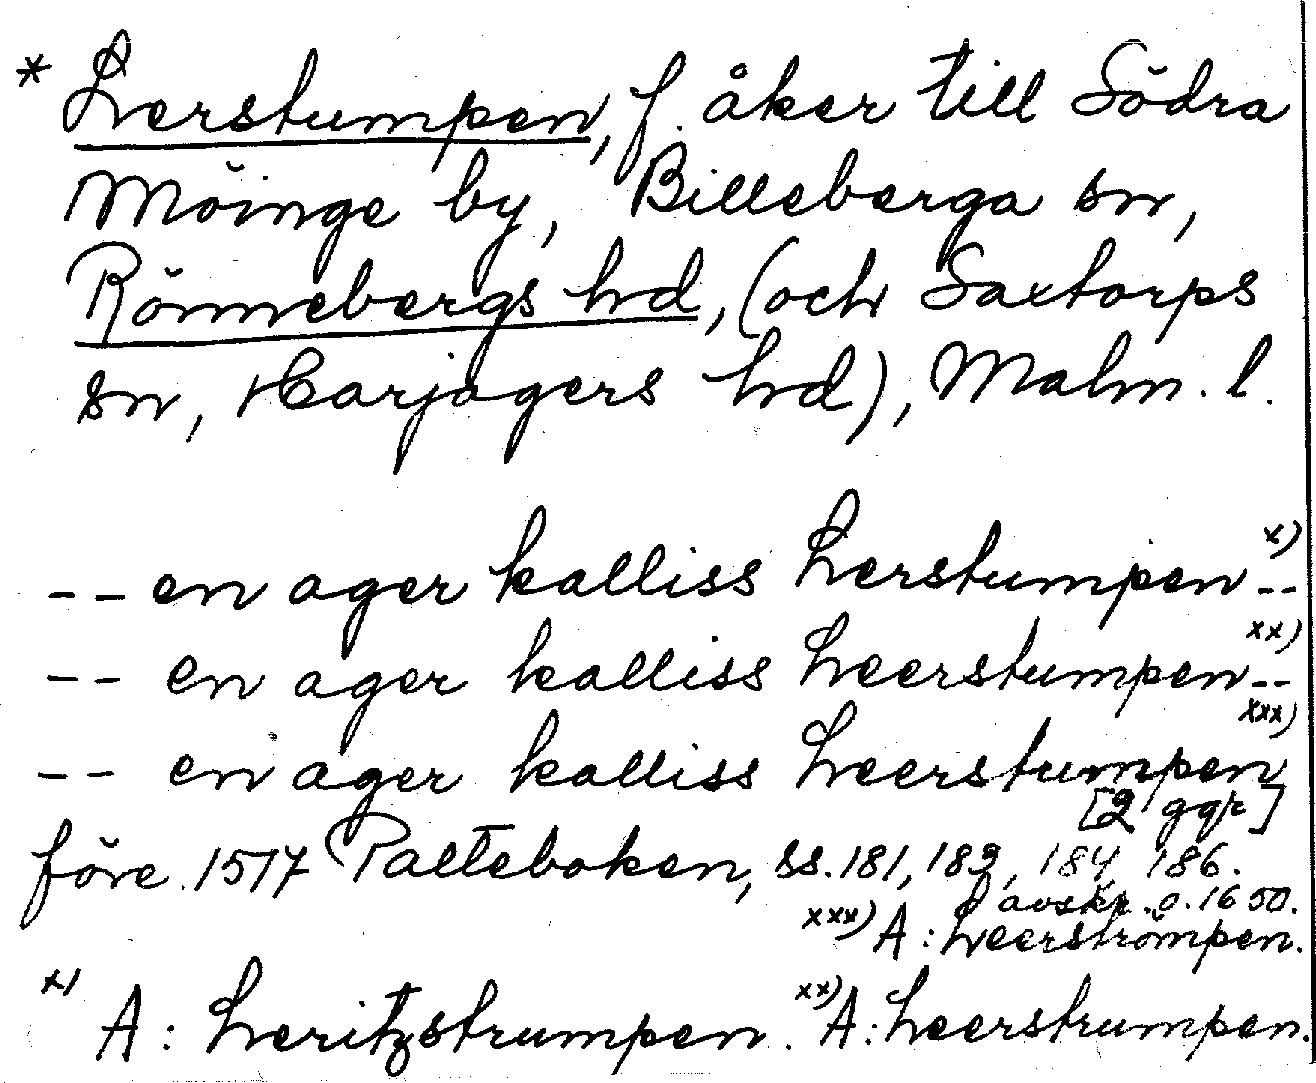 * Lerstumpen, f. åker till Södra
Möinge by, Billeberga sn,
Rönnebergs hd, (och Saxtorps
sn, Harjagers hd), Malm. l.
-- en ager kalliss Lerstumpen x) --
-- en ager kalliss Leerstumpen xx) --
-- en ager kalliss Leerstumpen xxx)
[2 ggr]
före 1517 Palteboken, ss. 181, 182, 184, 186.
i avskr. o. 1650.
xxx) A: Leerströmpen.
x) A: Leritzstrumpen. xx) A: Leerstrumpen.